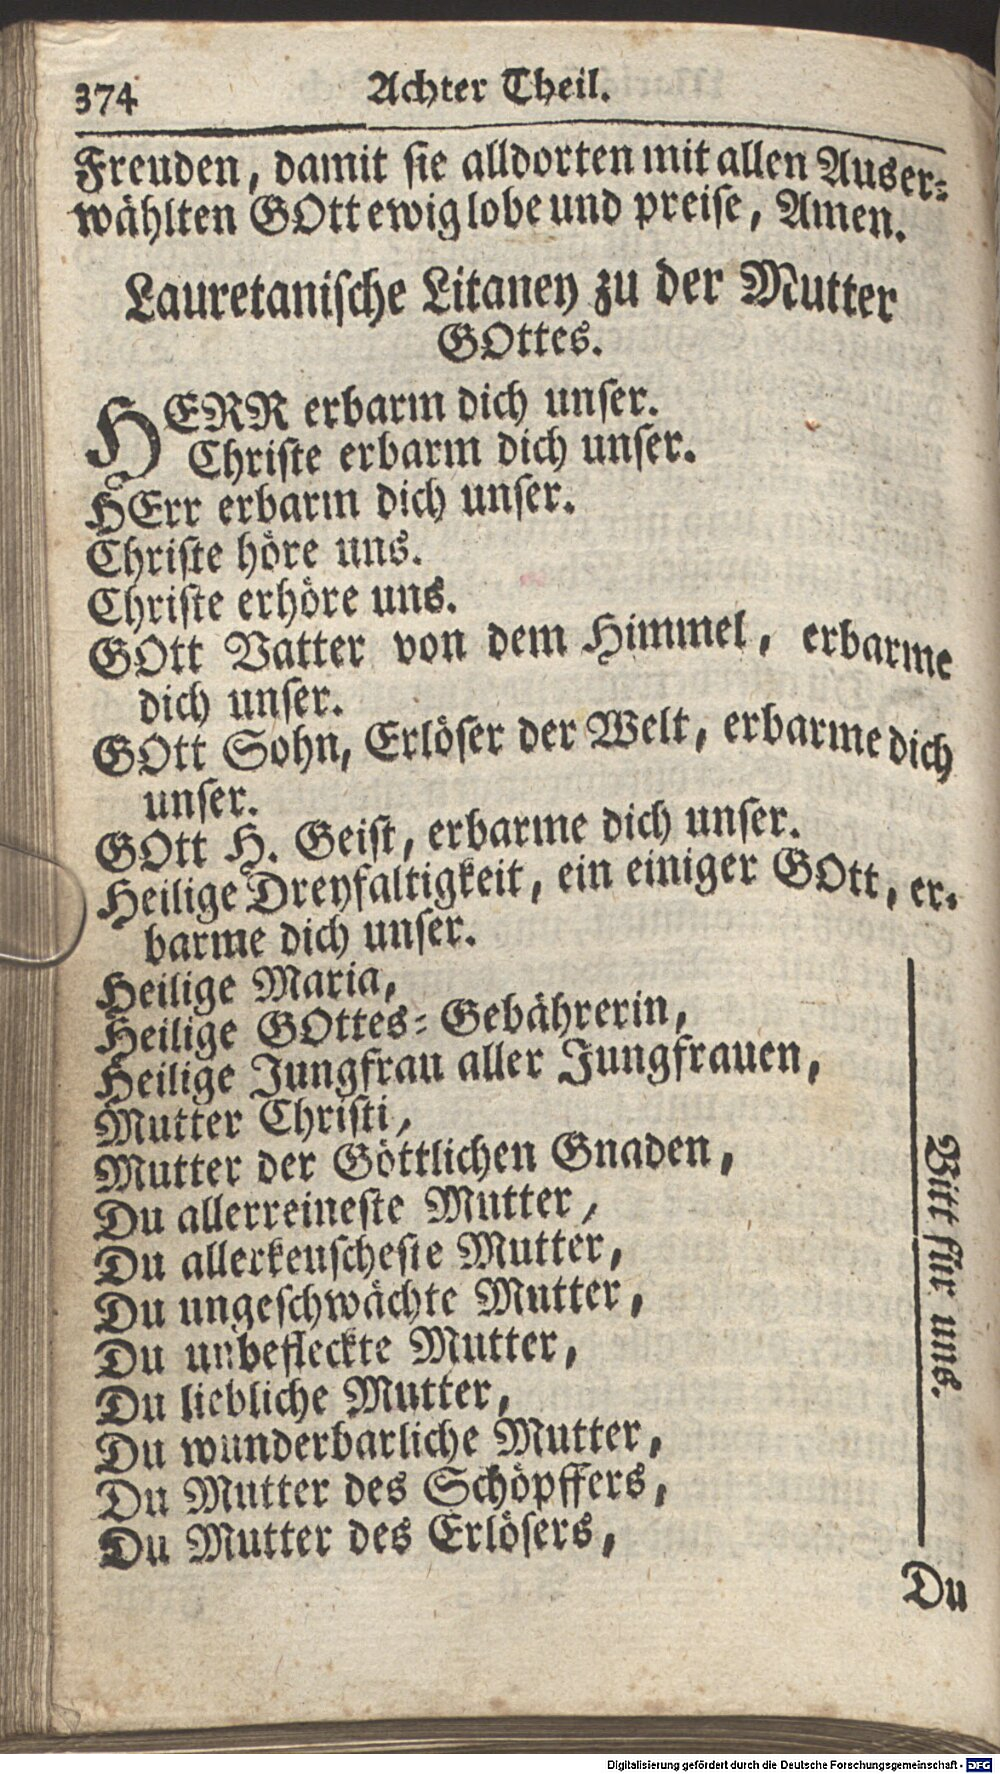 374 Achter Theil.
Freuden, damit sie alldorten mit allen Auser-
wählten GOtt ewig lobe und preise, Amen.
Lauretanische Litaney zu der Mutter
GOttes.
HERR erbarm dich unser.
Christe erbarm dich unser.
HErr erbarm dich unser.
Christe höre uns.
Christe erhöre uns.
GOtt Vatter von dem Himmel, erbarme
dich unser.
GOtt Sohn, Erlöser der Welt, erbarme dich
unser.
GOtt H. Geist, erbarme dich unser.
Heilige Dreyfaltigkeit, ein einiger GOtt, er-
barme dich unser.
Heilige Maria,
Heilige GOttes-Gebährerin,
Heilige Jungfrau aller Jungfrauen,
Mutter Christi,
Mutter der Göttlichen Gnaden,
Du allerreineste Mutter,
Du allerkeuscheste Mutter,
Du ungeschwächte Mutter,
Du unbefleckte Mutter,
Du liebliche Mutter,
Du wunderbarliche Mutter,
Du Mutter des Schöpffers,
Du Mutter des Erlösers,
Bitt für uns.
Du
Digitalisierung gefördert durch die Deutsche Forschungsgemeinschaft - DFG